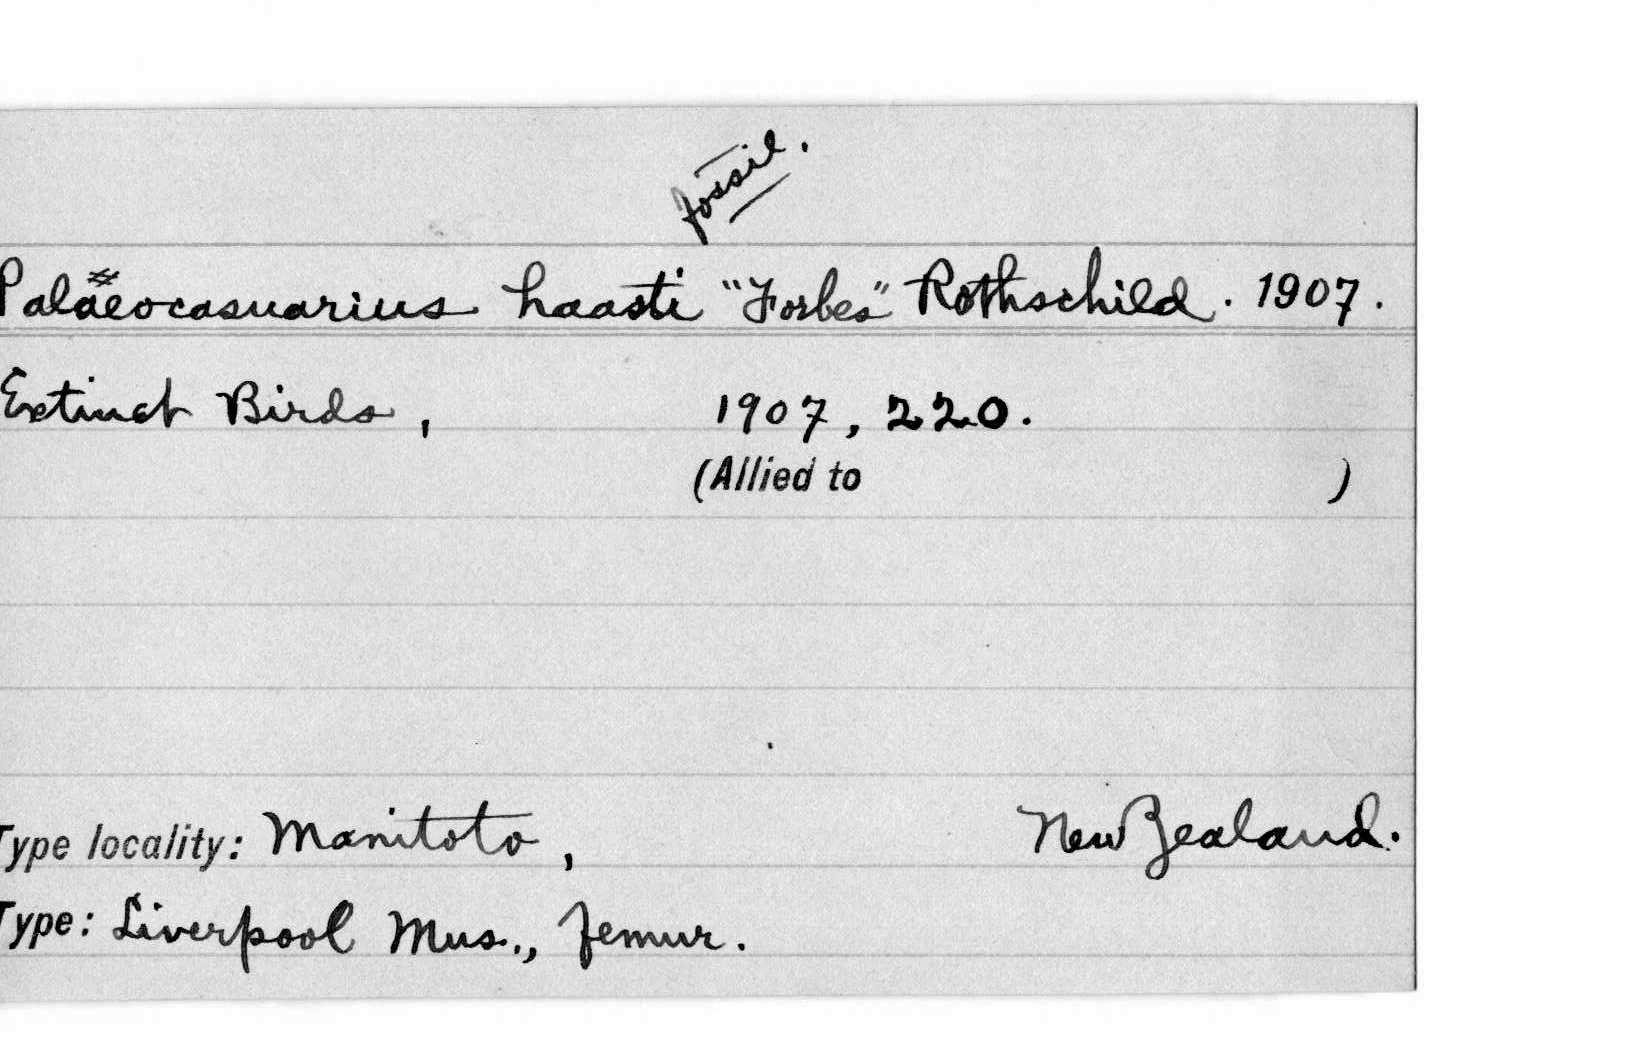 fossil.
Palaeocasuarius haasti "Forbes" Rothschild. 1907.
Extinct Birds, 1907, 220.
(Allied to )
Type locality: Manitoto, New Zealand.
Type: Liverpool Mus., femur.